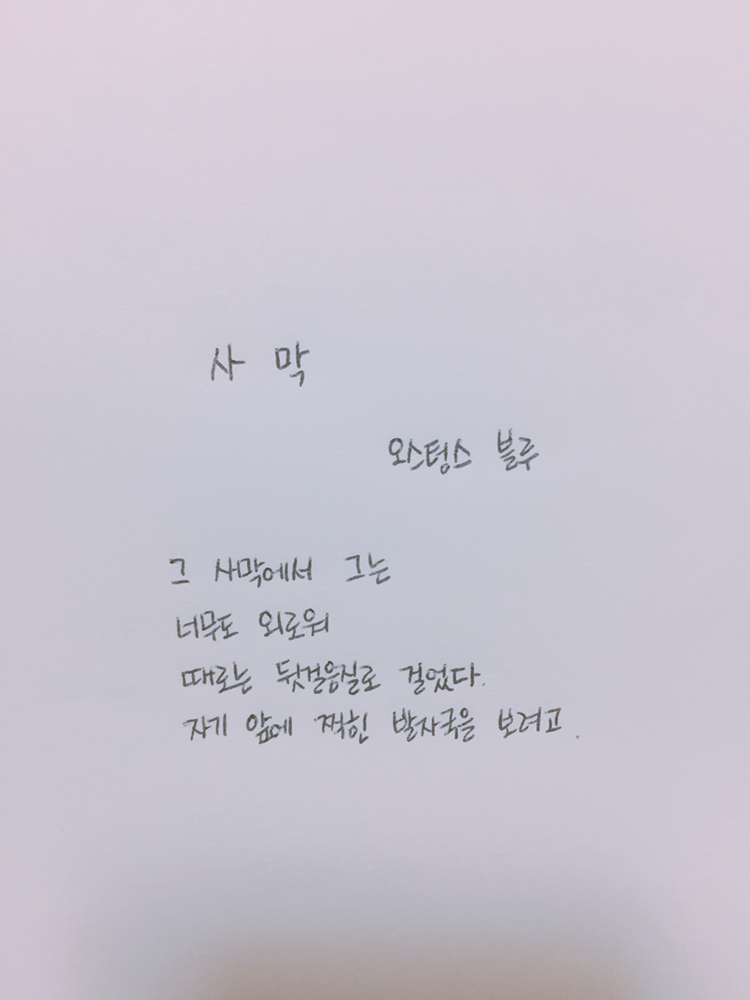 사 막
오스텅스 블루
그 사막에서 그는
너무도 외로워
때로는 뒷걸음질로 걸었다.
자기 앞에 찍힌 발자국을 보려고.